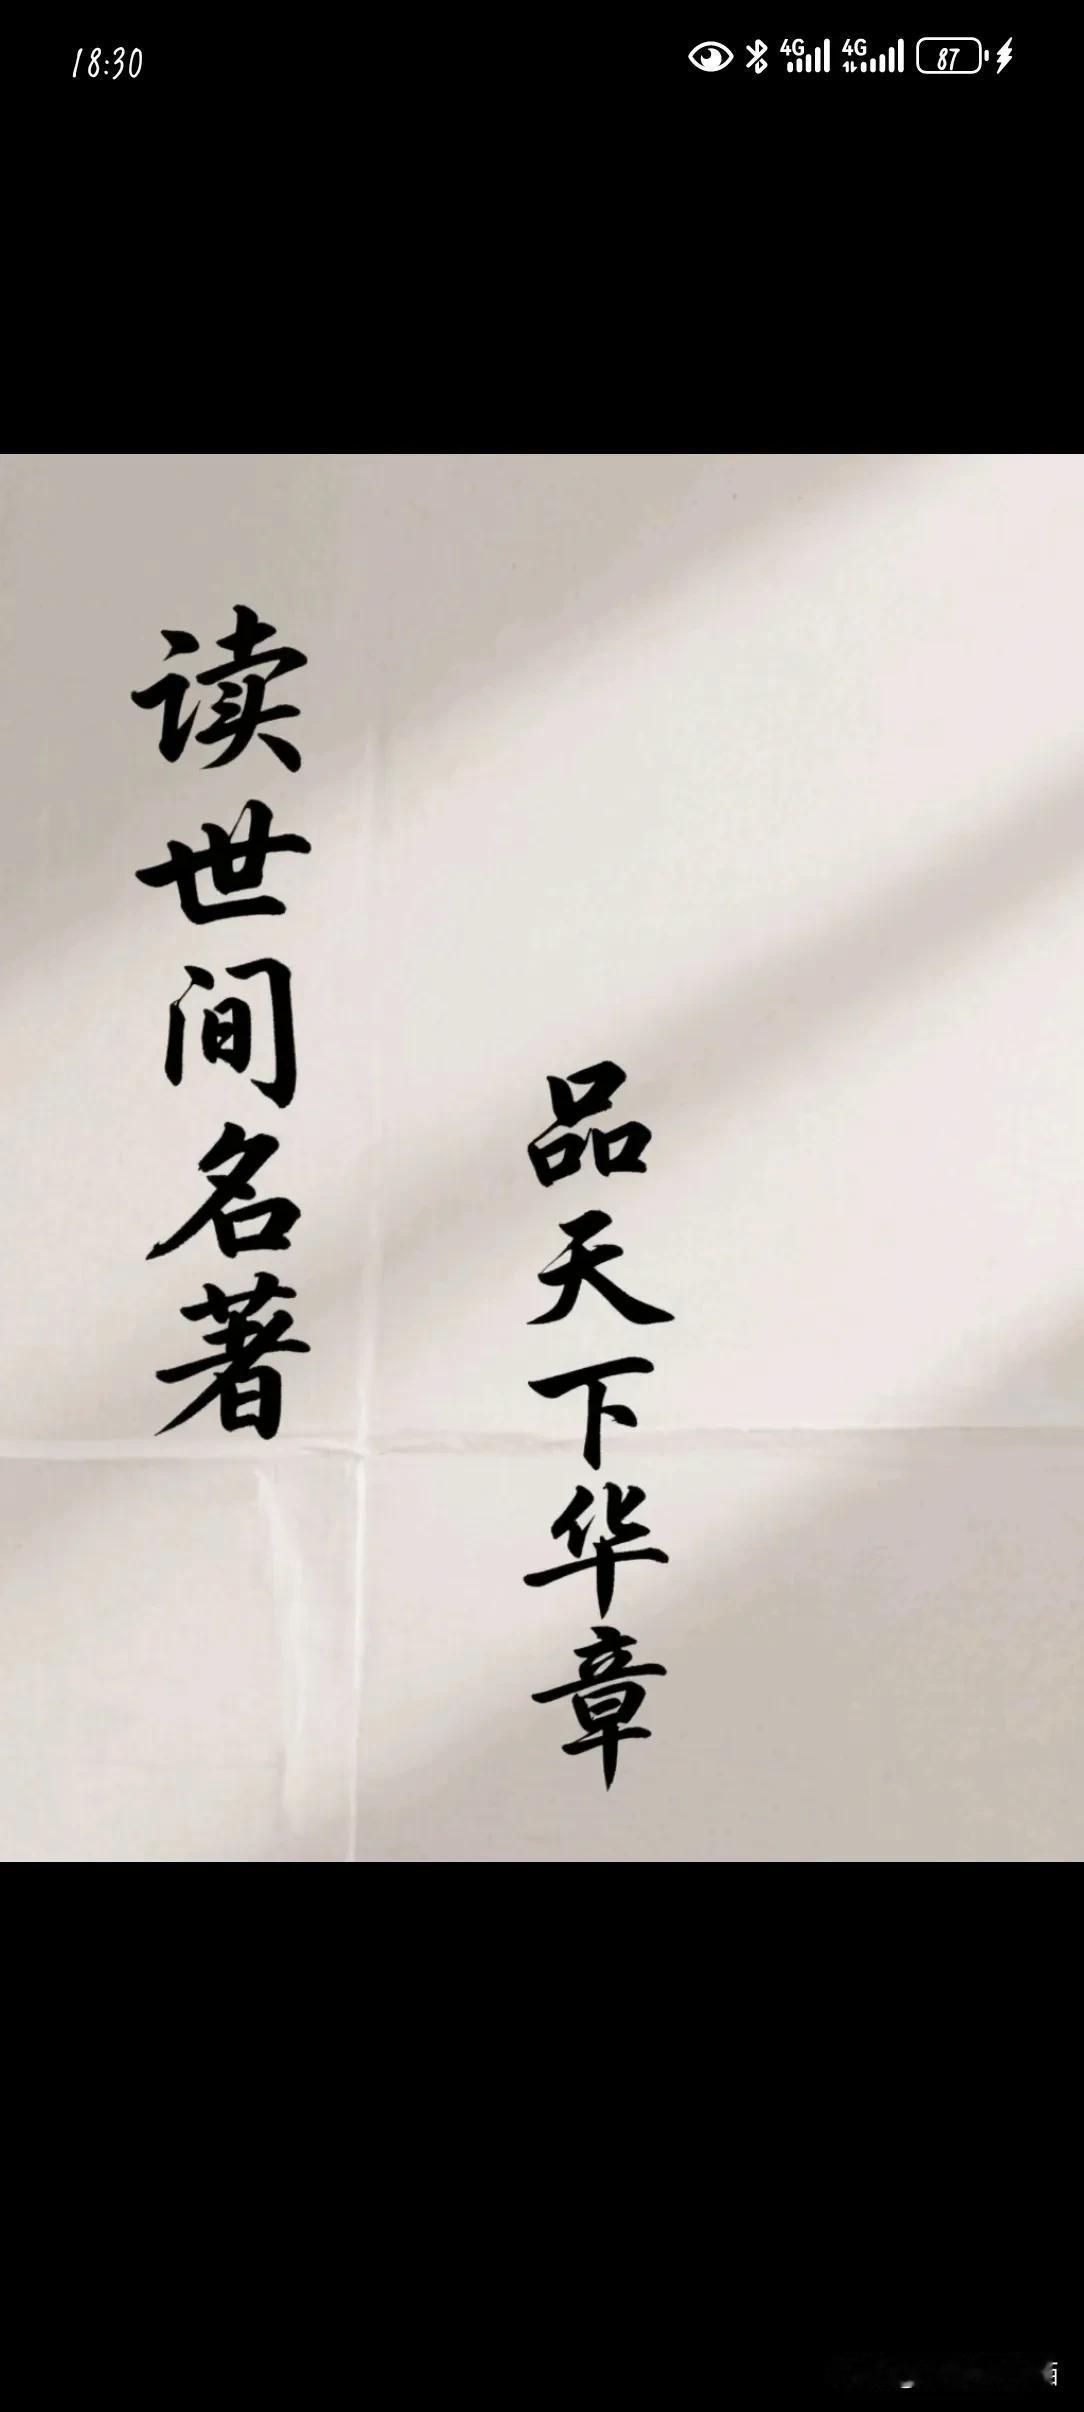 18:30
4G 4G 87
读世间名著
品天下华章